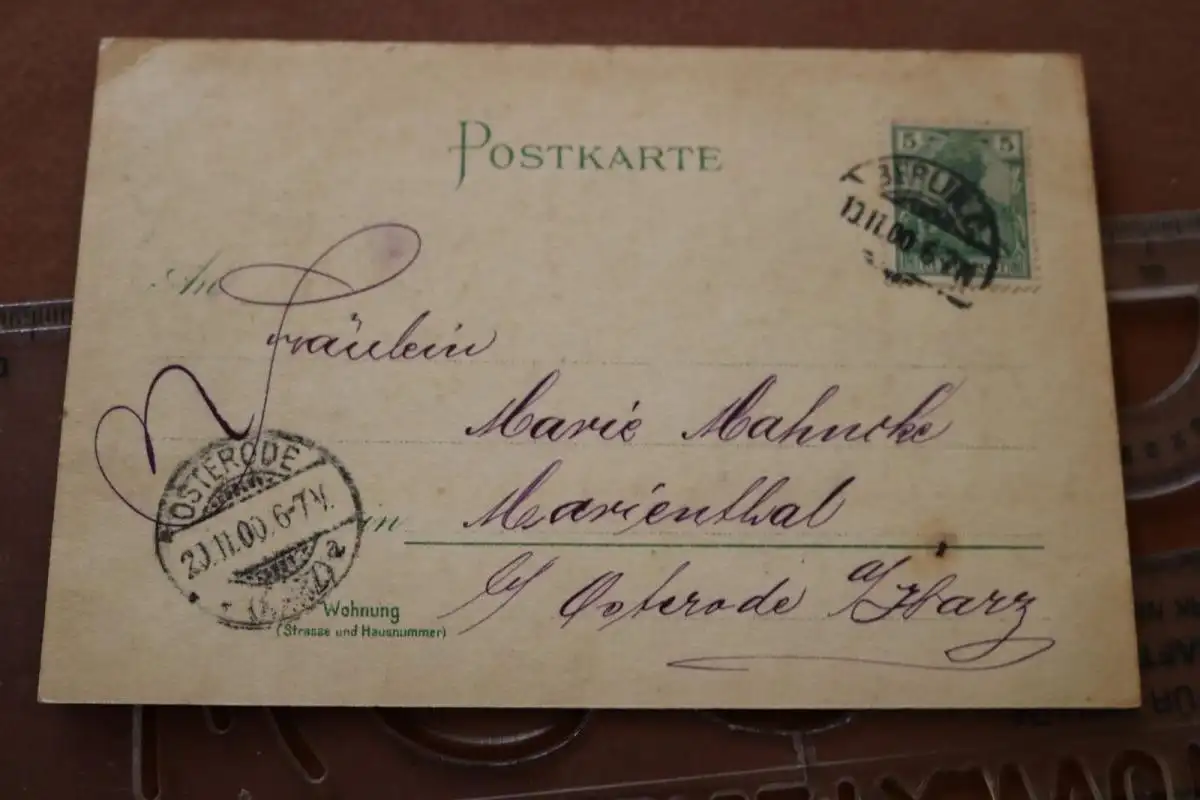 POSTKARTE
5 5
BERLIN
11.00.6-7N
An
Fräulein
Marie Mahncke
in Marienthal
b/ Osterode a/Harz
OSTERODE
20.11.00.6-7V.
a
Wohnung
(Strasse und Hausnummer)